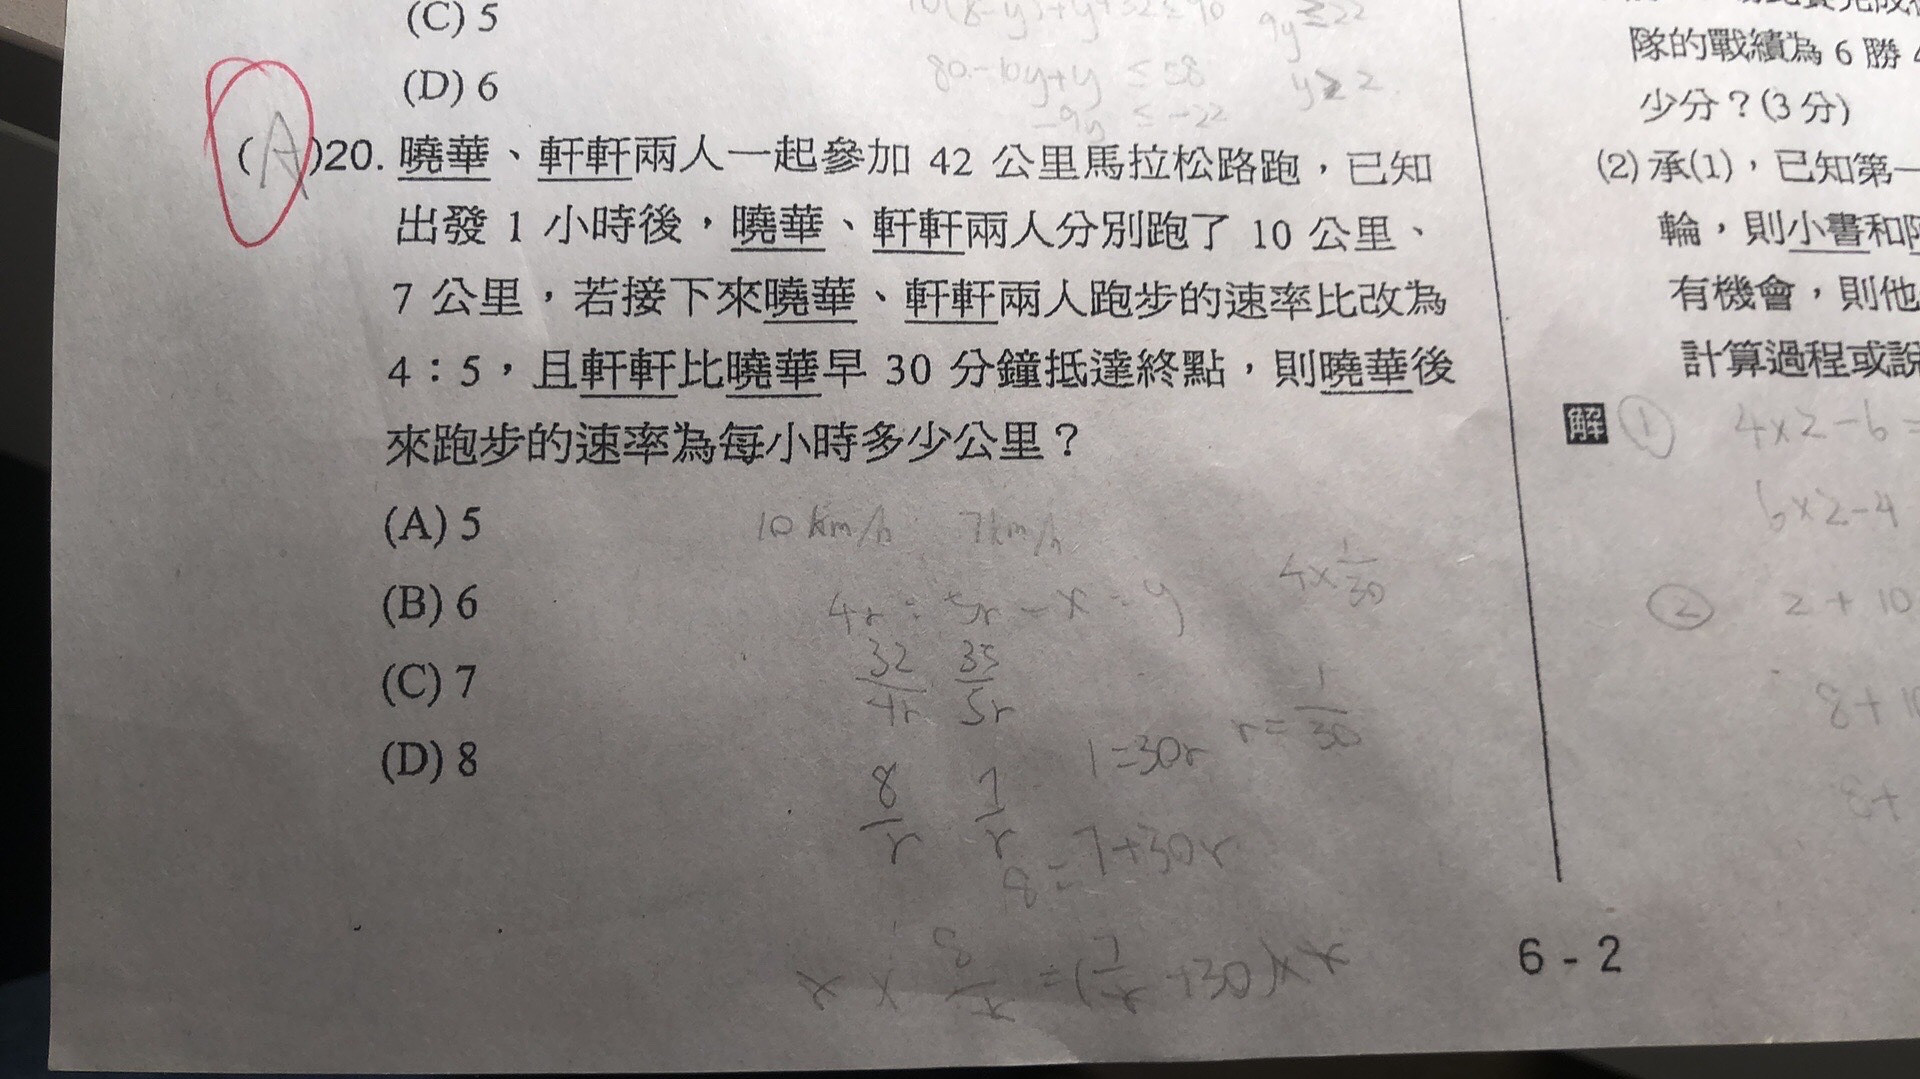 (C) 5
10(8-y)+y+32≤90
9y≥22
(D) 6
80-10y+y ≤ 58
y≥2
-9y ≤ -22
(A)20. 曉華、軒軒兩人一起參加 42 公里馬拉松路跑，已知
出發 1 小時後，曉華、軒軒兩人分別跑了 10 公里、
7 公里，若接下來曉華、軒軒兩人跑步的速率比改為
4：5，且軒軒比曉華早 30 分鐘抵達終點，則曉華後
來跑步的速率為每小時多少公里？
(A) 5
10 km/h 7km/h
4×1/30
(B) 6
4r : 5r = x : y
(C) 7
32/4r 35/5r
(D) 8
1=30r r=1/30
8/r 7/r
8=7+30r
x × 8/x =(7/x +30)×x
6 - 2
隊的戰績為 6 勝
少分？(3 分)
(2) 承(1)，已知第一
輪，則小書和
有機會，則他
計算過程或說
解 ① 4×2-6=
6×2-4
② 2+10
8+1
8+